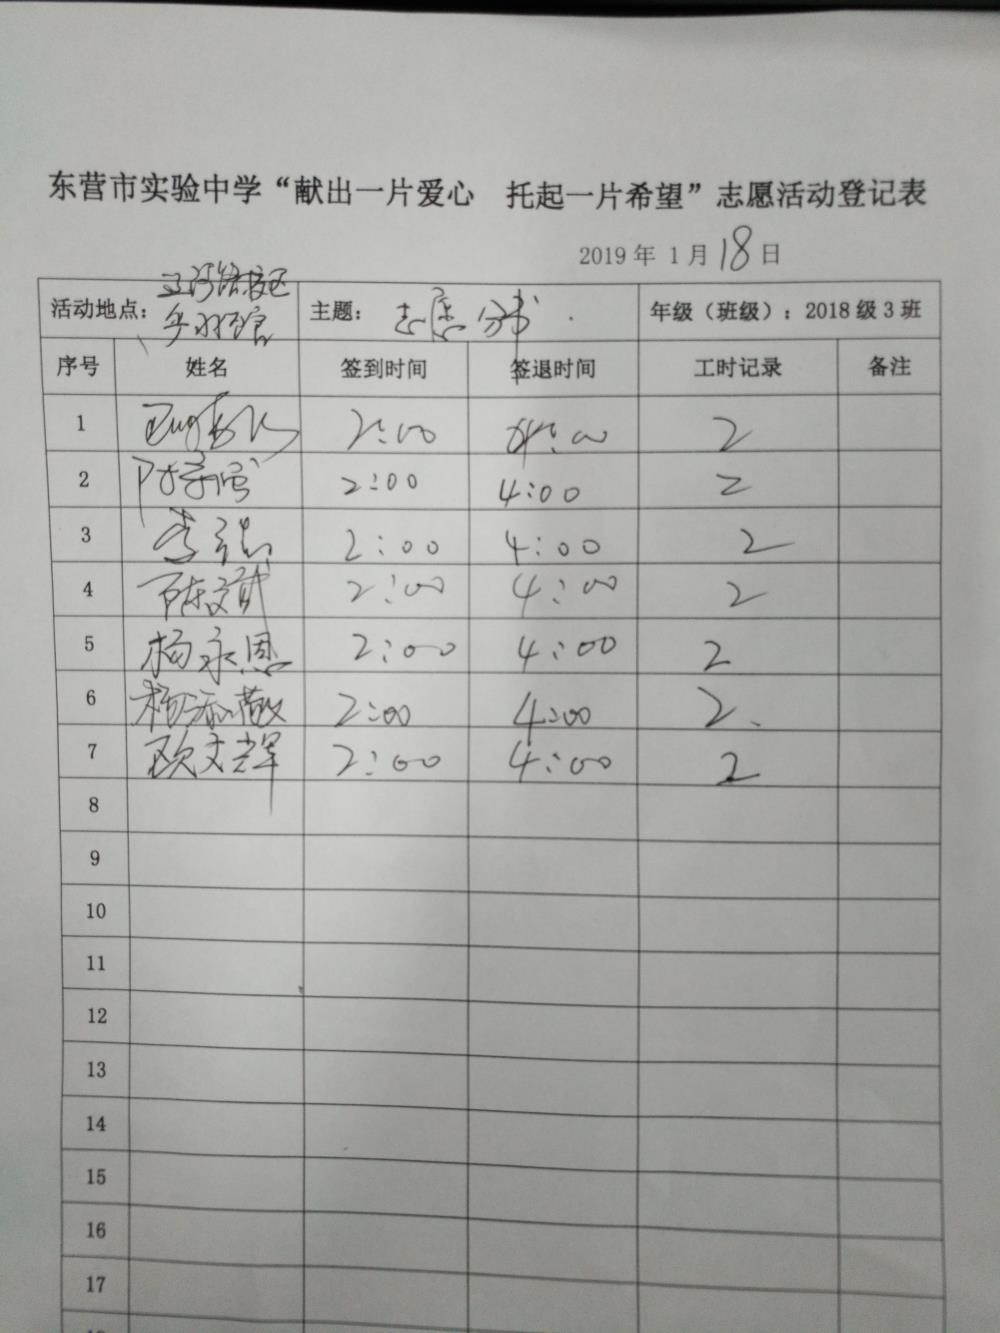 东营市实验中学“献出一片爱心 托起一片希望”志愿活动登记表
2019 年 1 月 18 日
活动地点： 主题： 志愿 年级（班级）：2018 级 3 班
序号 姓名 签到时间 签退时间 工时记录 备注
1 2:00 4:00 2
2 2:00 4:00 2
3 李 2:00 4:00 2
4 陈文斌 2:00 4:00 2
5 杨永恩 2:00 4:00 2
6 杨添敬 2:00 4:00 2
7 欧文辉 2:00 4:00 2
8
9
10
11
12
13
14
15
16
17